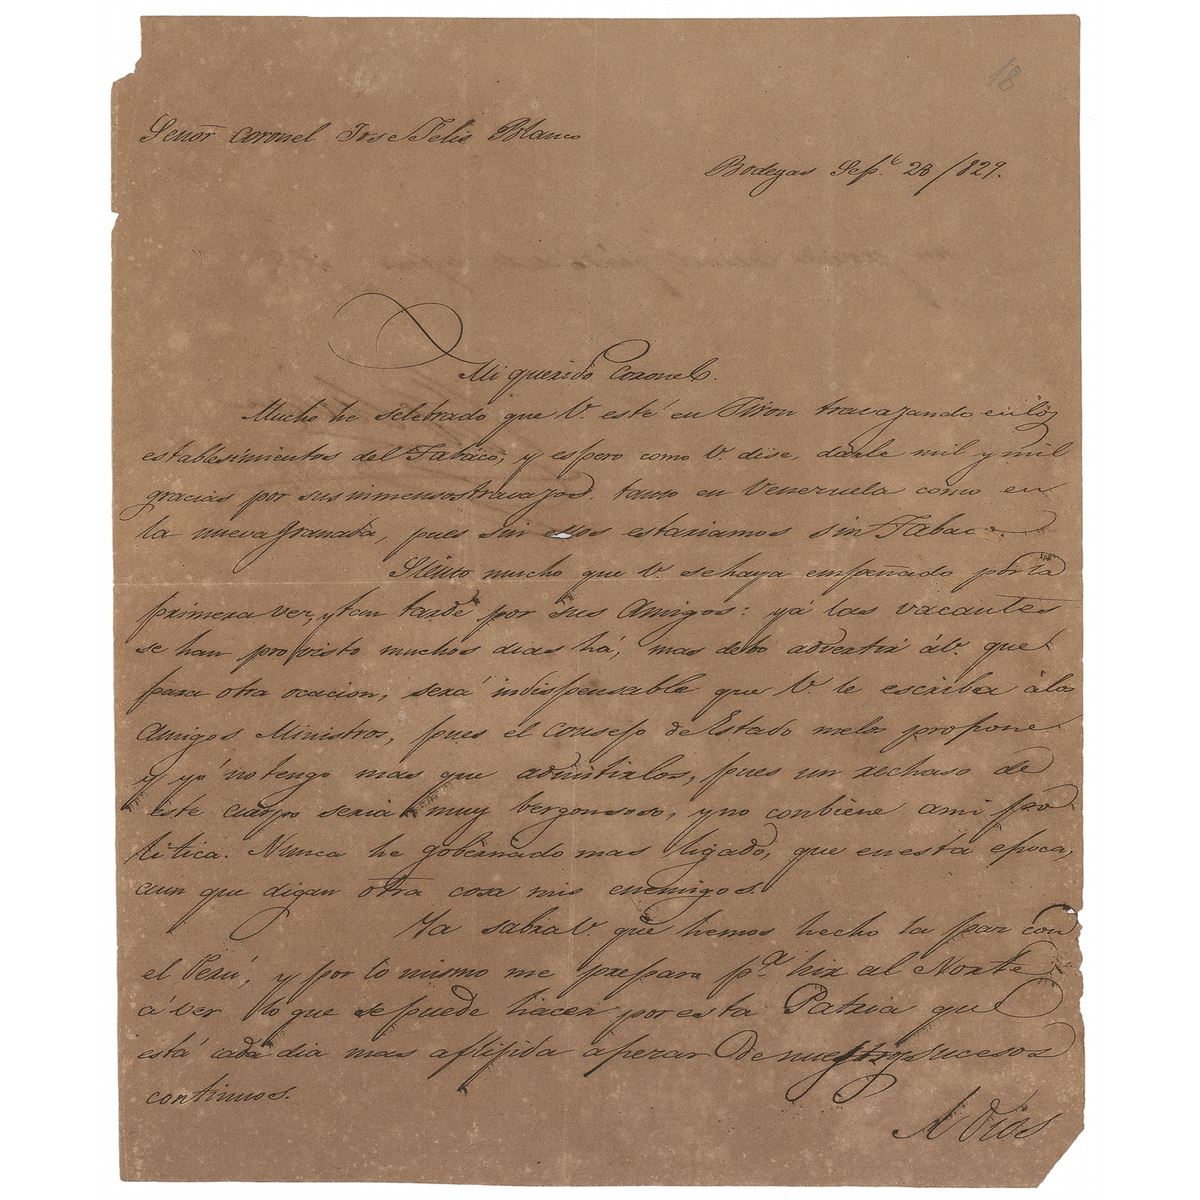 18
Señor Coronel Jose Felis Blanco
Bodegas Sep.e 28/829.
Mi querido Coronel.
Mucho he selebrado que V. esté en Jiron travajando en los
establesimientos del Tabáco, y espero como V. dise, darle mil y mil
gracias por sus inmensos travajos. tanto en Venezuela como en
la nueva Granada, pues sin ellos estariamos sin Tabac
Siento mucho que V. se haya empeñado por la
primera vez, y tan tarde por sus Amigos: yá las vacantes
se han provisto muchos dias há, mas debo advertir áV. que
para otra ocacion, será indispensable que V. le escriba á los
Amigos Ministros, pues el Consejo de Estado melos propone
y yá no tengo mas que admitirlos, pues un rechaso de
este cuerpo seria muy bergonsoso, y no conbiene ami po-
litica. Nunca he gobernado mas ligado, que en esta época,
aún que digan otra cosa mis enemigos.
Ya sabra V. que hemos hecho la paz con
el Perú, y por lo mismo me preparo p.a hir al Norte
á ver lo que se puede hacer por esta Patria que
está cada dia mas aflijida apezar de nuestros sucesos
continuos.
A Dios